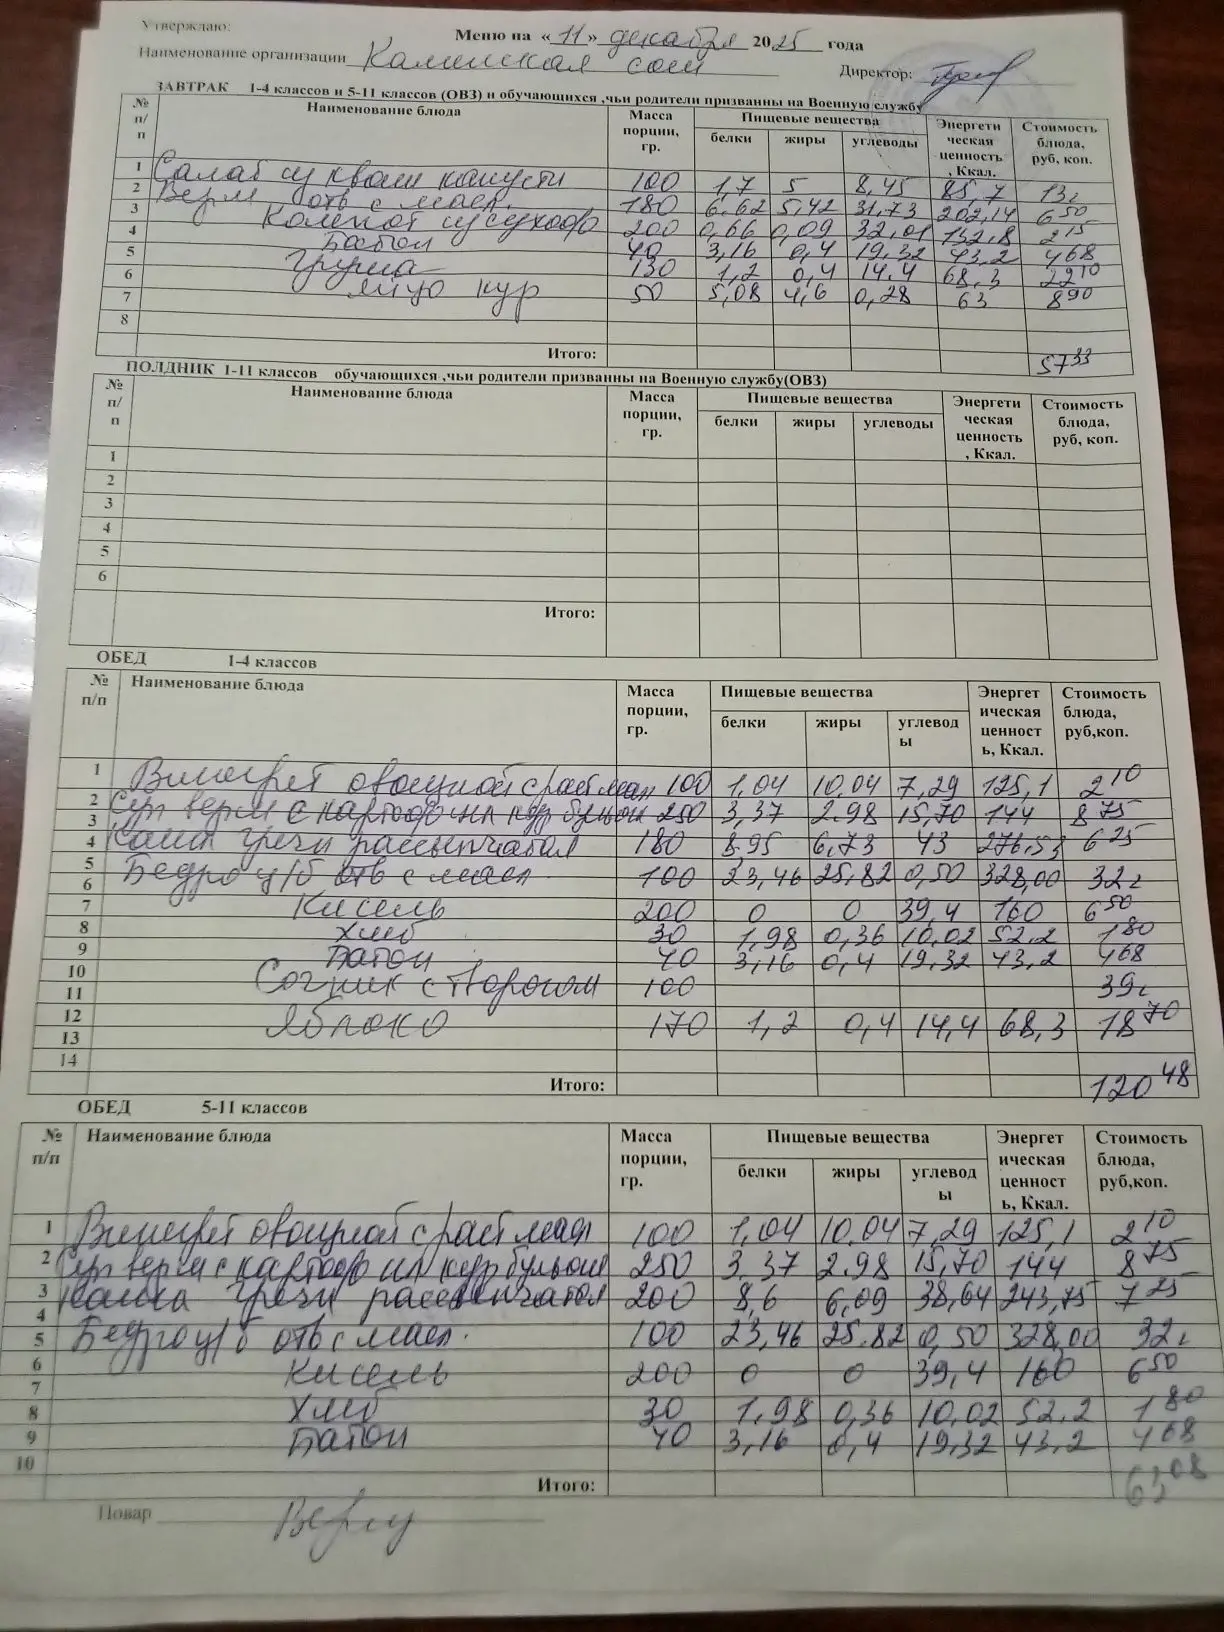 Утверждаю:
Меню на «11» декабря 2025 года
Наименование организации Каминская сош Директор:
ЗАВТРАК 1-4 классов и 5-11 классов (ОВЗ) и обучающихся ,чьи родители призванны на Военную службу
№ п/п Наименование блюда Масса порции, гр. Пищевые вещества Энергетическая ценность, Ккал. Стоимость блюда, руб, коп.
белки жиры углеводы
1 Салат из кваш капусты 100 1,7 5 8,45 85,7 13,
2 Верм отв с масл. 180 6.62 5,42 31,73 202,14 6 50
3 Компот из сухофр 200 0,66 0,09 32,01 132,8 2 15
4 Батон 40 3,16 0,4 19,32 43,2 4 68
5 Груша 130 1,2 0,4 14.4 68,3 22 10
6 яйцо кур 50 5,08 4,6 0,28 63 8 90
7
8
Итого: 57 33
ПОЛДНИК 1-11 классов обучающихся ,чьи родители призванны на Военную службу(ОВЗ)
№ п/п Наименование блюда Масса порции, гр. Пищевые вещества Энергетическая ценность, Ккал. Стоимость блюда, руб, коп.
белки жиры углеводы
1
2
3
4
5
6
Итого:
ОБЕД 1-4 классов
№ п/п Наименование блюда Масса порции, гр. Пищевые вещества Энергетическая ценность, Ккал. Стоимость блюда, руб,коп.
белки жиры углеводы
1 Винегрет овощной с раст масл 100 1,04 10,04 7,29 125,1 2 10
2 Суп верм с картоф на кур бульон 250 3,37 2.98 15,70 144 8 75
3 Каша гречн рассыпчатая 180 8,95 6,73 43 276,53 6 25
4 Бедро ц/б отв с масл. 100 23,46 25,82 0,50 328,00 32,
5
6 Кисель 200 0 0 39,4 160 6 50
7 Хлеб 30 1,98 0,36 10,02 52,2 1 80
8 Батон 40 3,16 0,4 19,32 43,2 4 68
9
10 Сочник с творогом 100 39,
11
12 Яблоко 170 1,2 0,4 14,4 68,3 18 70
13
14
Итого: 120 48
ОБЕД 5-11 классов
№ п/п Наименование блюда Масса порции, гр. Пищевые вещества Энергетическая ценность, Ккал. Стоимость блюда, руб,коп.
белки жиры углеводы
1 Винегрет овощной с раст масл 100 1,04 10,04 7,29 125,1 2 10
2 Суп верм с картоф на кур бульоне 250 3,37 2.98 15,70 144 8 75
3 Кашка гречн рассыпчатая 200 8,6 6,09 38,64 243,75 7 25
4 Бедро ц/б отв с масл. 100 23,46 25.82 0,50 328,00 32,
5
6 Кисель 200 0 0 39,4 160 6 50
7 Хлеб 30 1,98 0,36 10,02 52,2 1 80
8 Батон 40 3,16 0,4 19,32 43,2 4 68
9
10
Итого: 63,08
Повар